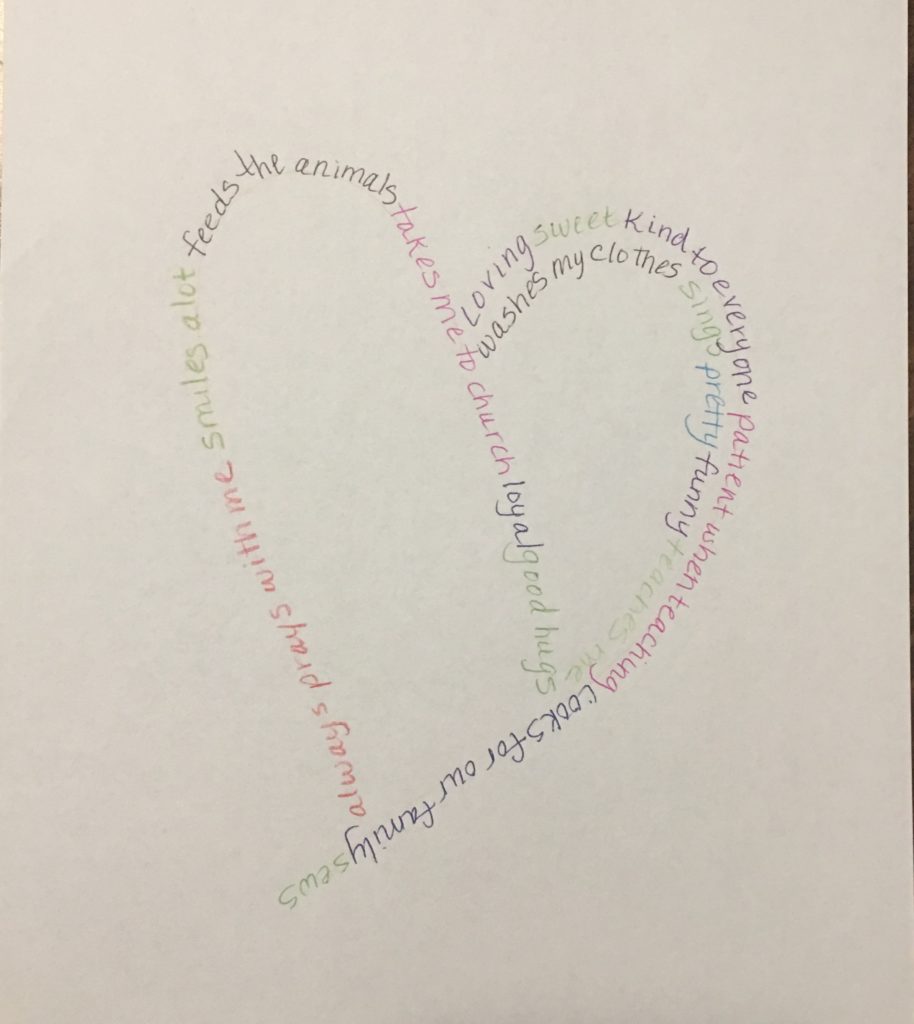 always prays with me smiles alot feeds the animals takes me to church loyal good hugs
Loving sweet kind to everyone patient when teaching cooks for our family sews
washes my clothes sings pretty funny teaches me